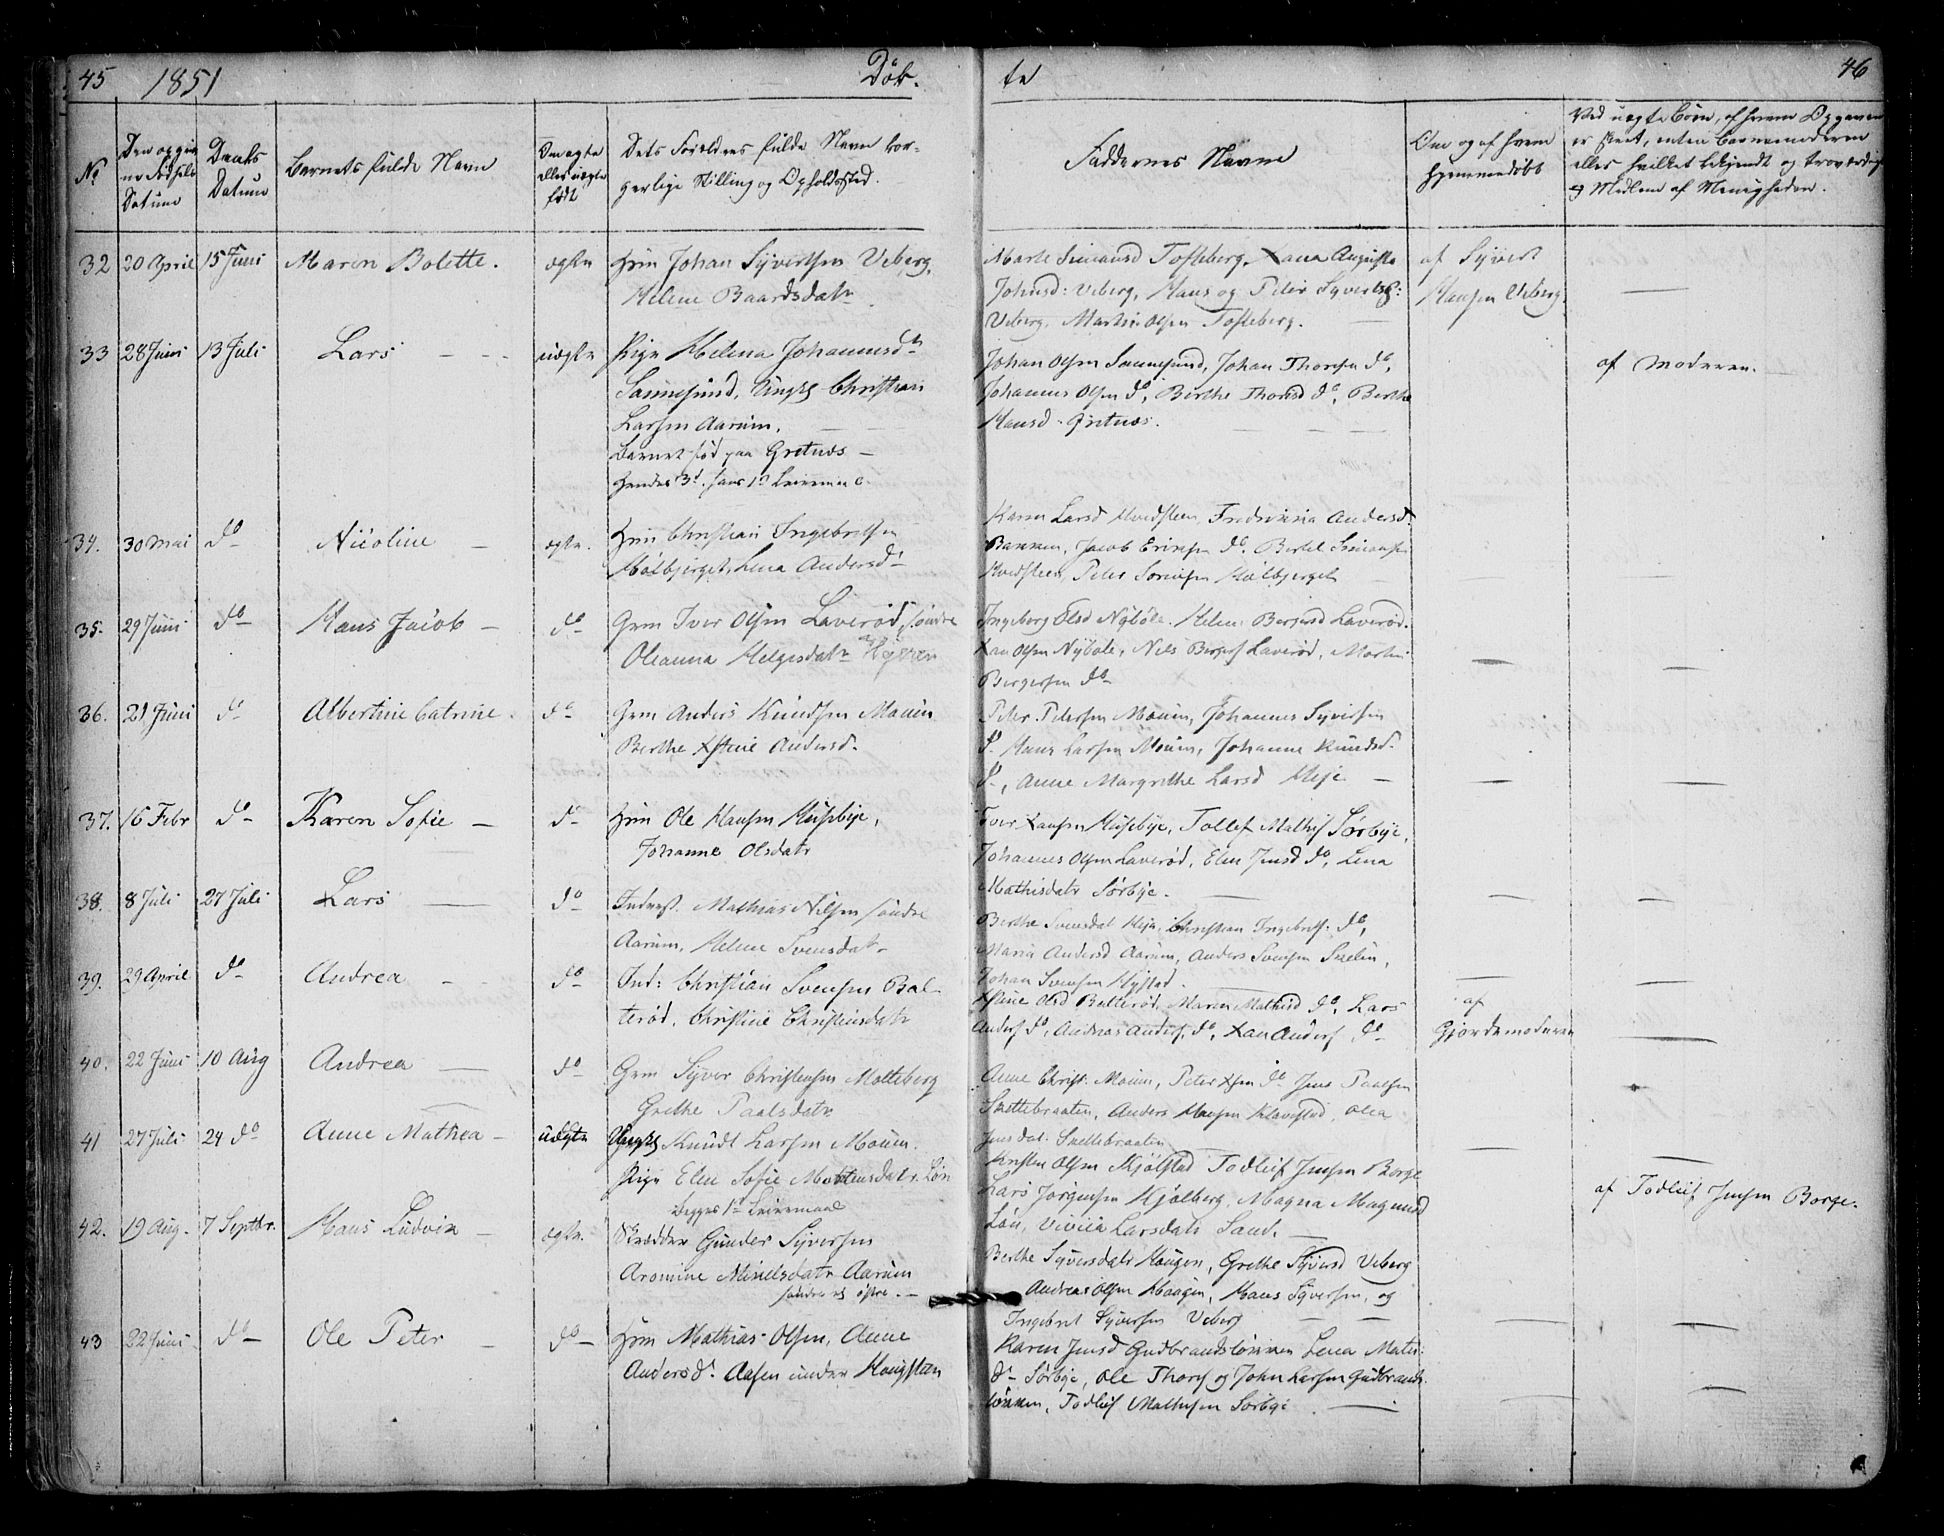 45 1851 Døb-
te 46
No
Den opgivne Fødsels Datum
Daabs Datum
Barnets fulde Navn
Om ægte eller uægte født
Dets Forældres fulde Navn borgerlige Stilling og Opholdssted.
Faddernes Navne
Om og af hvem hjemmedøbt
Ved uægte Børn, af hvem Opgaven
er skeet, enten Barnemoderen
eller hvilket bekjendt og troværdigt
Medlem af Menigheden.
32 20 April 15 Juni Maren Bolette. ægte Hm Johan Syvertsen Veberg,
Helene Baardsdatr
Marte Simensd Tofteberg, Xana Augusta
Johnsd: Veberg, Hans og Peter Syverts:
Veberg, Martin Olsen Tofteberg.
af Syvert
Hansen Veberg
33 28 Juni 13 Juli Lars uægte Pige Helena Johannesd
Sannesund, Ungk Christian
Larsen Aarum.
Barnet fød paa Gretnæs
Hendes 3d, hans 1ste Leierm
Johan Olsen Sannesund, Johan Thoresen do,
Johannes Olsen do, Berthe Thorsd do, Berthe
Hansd Gretnæs.
af Moderen.
34. 30 Mai do Nicoline ægte. Hm Christian Ingebretsen
Kolbjerget, Lena Andersd
Karen Larsd Hvedsteen, Andersd.
Bakken, Jacob Eriksen do, Bertel Simensen
Hvedsteen, Peter Kolbjerget
35. 29 Juni do Hans Jacob do Grm Iver Olsen Laverød, søndre
Oleanna Helgesdatr
Ingeborg Olsd Nybøle. Helene Laverød.
Xan Olsen Nybøle, Nils Bergers Laverød, Martin
Bergersen do
36. 21 Juni do Albertine Catrine. do Grm Anders Knudsen Mouun
Berthe Xstine Andersd.
Peter Petersen Mouun, Johannes Syversen
do Hans Larsen Mouun, Johanne Knudsd.
do, Anne Margrethe Larsd Heje
37. 16 Febr do Karen Sofie do Hm Ole Hansen Husebye,
Johanne Olsdatr
Iver Xansen Husebye, Tollef Mathis Sørbye,
Johannes Olsen Laverød, Elen Jensd do, Lena
Mathisdatr Sørbye.
38. 8 Juli 27 Juli Lars do Inderst. Mathias Nilsen søndre
Aarum, Helene Svensdatr
Berthe Svensdat Heje, Christian Ingebrets. do,
Maria Andersd Aarum, Anders Svensen,
Johan Svensen
39. 29 April do Andrea do Ind: Christian Svensen Bal-
terød. Christine Christensdatr
Xstine Olsd Balterød, Maren Mathisd do, Lars
Anders do, Andreas Anders. do, Xan Anders do
af
Gjordemoderen
40. 22 Juni 10 Aug Andrea do Grm Syver Christensen Molteberg
Grethe Paalsdatr
Anne Christ. Mouun, Peter Xsen do Jens Paalsen
Skettebraaten, Anders Hansen Klavestad, Olea
Jensdat. Skettebraaten
41 27 Juli 24 do Anne Mathea uægte Ungk Knudt Larsen Mouun.
Pige Elen Sofie Mortensdatr. Løn
begges 1ste Leiermaal
Kristen Olsen Kjølstad Todleif Jensen Borge
Lars Jørgensen Kjølberg, Magna Magnusd
Løn, Larsdatr Sand.
af Todleif Jensen Borge.
42. 19 Aug. 7 Septbr. Hans Ludvik ægte. Skrædder Gunder Syversen
Aromine Nielsdatr Aarum
søndre og østre.
Berthe Syversdatr Haugen, Grethe Syversd Veberg
Andreas Olsen Haugen, Hans Syversen, og
Ingebret Syversen Veberg
43 22 Juni do Ole Peter do Hm Mathias Olsen, Anne
Andersd. Aasen under Hougsteen
Karen Jensd Gudbrandsløkken Lena Mathis:
do Sørbye, Ole Thors og John Larsen Gudbrands-
løkken, Todleif Mathisen Sørbye